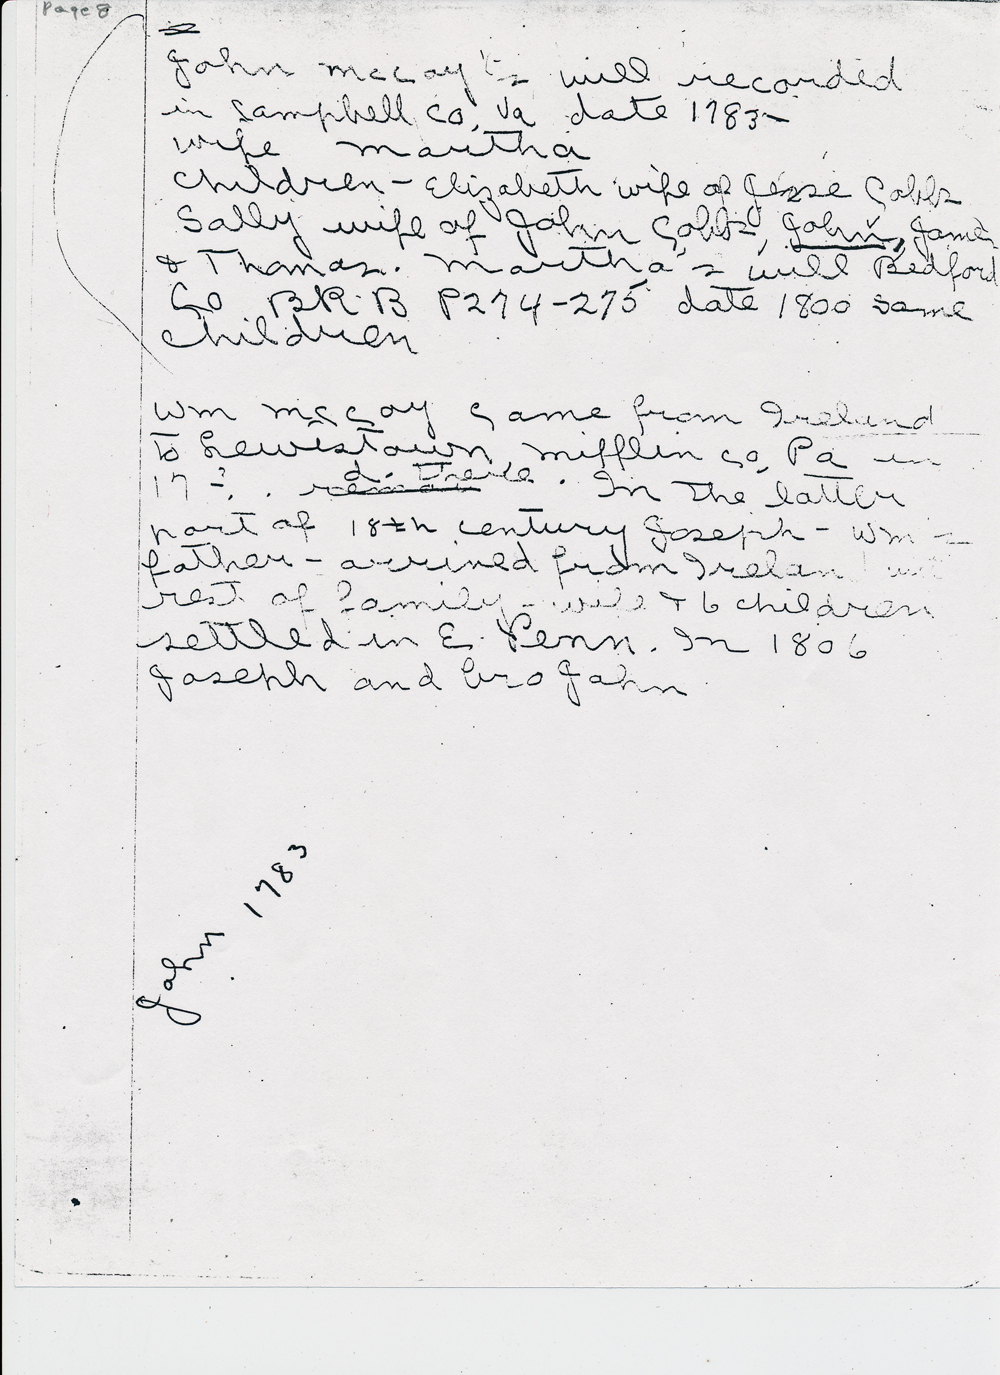 Page 8
John McCoy's will recorded
in Campbell Co, Va date 1783-
wife Martha
Children - Elizabeth wife of Jesse Cobbs
Sally wife of John Cobbs, John, James
& Thomas. Martha's will Bedford
Co BK. B P274-275 date 1800 same
children
Wm McCoy came from Ireland
to Lewistown, Mifflin Co, Pa in
17-?. d. there. In the latter
part of 18th century Joseph - Wm's
father - arrived from Ireland with
rest of family - wife & 6 children
settled in E. Penn. In 1806
Joseph and bro John
John 1783